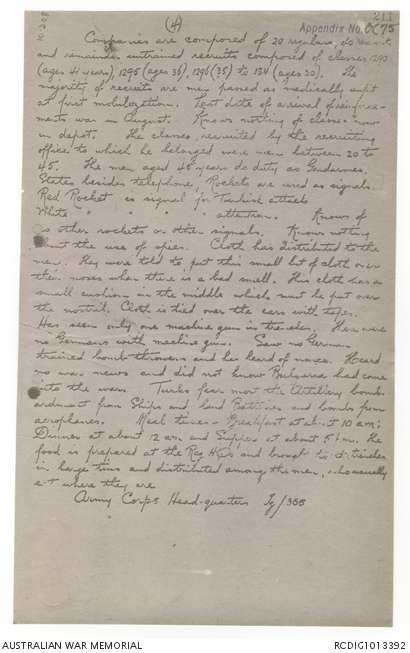 (4)
211
Appendix No. 6C 75
Companies are composed of 20 regulars,
and remainder untrained recruits composed of classes 1290
(ages 41 years), 1295 (ages 36), 1296 (35) to (ages 20). The
majority of recruits are men passed as medically unfit
at first mobilization. Last date of arrival of reinforce-
ments was in August. Knows nothing of classes now
in depot. The classes recruited by the recruiting
office to which he belonged were men between 20 to
45. The men aged 45 years do duty as Gendarmes.
States besides telephone, Rockets are used as signals.
Red Rocket is signal for Turkish attack
White " " " " attention. Knows of
no other rockets or other signals. Knows nothing
about the use of spies. Cloth has distributed to the
men. They were told to put this small bit of cloth over
their noses when there is a bad smell. This cloth has a
small cushion in the middle which must be put over
the nostril. Cloth is tied over the ears with tapes.
Has seen only one machine gun in trenches. There were
no Germans with machine guns. Saw no German
trained bomb throwers and he heard of none. Heard
no war news and did not know Bulgaria had come
into the war. Turks fear most the Artillery bomb-
ardment from Ships and land Batteries and bombs from
aeroplanes. Meal times - Breakfast at about 10 am;
Dinner at about 12 am and Supper at about 5 pm. The
food is prepared at the Reg HQrs and brought to the trenches
in large tins and distributed among the men, who usually
eat where they are
Army Corps Head-quarters Ig/355
AUSTRALIAN WAR MEMORIAL
RCDIG1013392